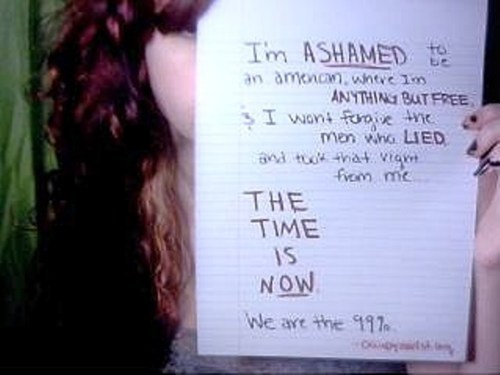 I'm ASHAMED to be
an american, where Im
ANYTHING BUT FREE,
& I wont forgive the
men who LIED,
and took that right
from me...
THE
TIME
IS
NOW.
We are the 99%.